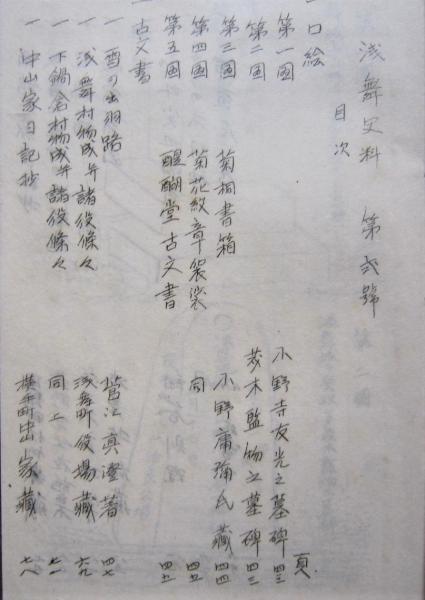 浅舞史料　第弐號
目次
頁
一口絵
第一図　小野寺友光之墓碑　四三
第二図　茂木監物之墓碑　四三
第三図　菊桐書箱　小野庸彌氏藏　四四
第四図　菊花紋章袈裟　同　四五
第五図　醍醐堂古文書　四五
一古文書
一雪の出羽路　菅江真澄著　四七
一浅舞村物成并諸役條々　浅舞町役場藏　六九
一下鍋倉村物成并諸役條々　同上　七一
一中山家日記抄　横手町中山家藏　七八